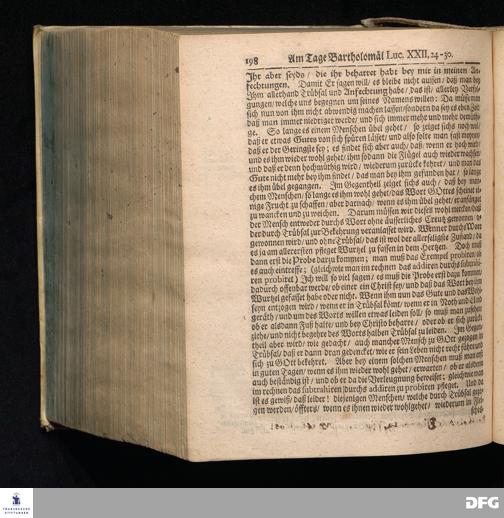 198 Am Tage Bartholomäi Luc. XXII, 24-30.
Ihr aber seyds / die ihr beharret habt bey mir in meinen An-
fechtungen. Damit Er sagen will / es bleibe nicht aussen / daß man bey
Ihm allerhand Trübsal und Anfechtung habe / das ist / allerley
gungen / welche uns begegnen um seines Namens willen: Da müsse man
sich nun von ihm nicht abwendig machen lassen / sondern da sey es eben Zeit /
daß man immer niedriger werde / und sich immer mehr und mehr demüthi-
ge. So lange es einem Menschen übel gehet / so zeiget sichs noch
daß er etwas Gutes von sich spüren lässet / und also solte man fast meynen /
daß er der Geringste sey; es findet sich aber auch / daß / wenn er hoch
und es ihm wieder wohl gehet / ihm sodann die Flügel auch wieder wachsen
und daß er denn hochmüthig wird / wiederum zurücke kehret / und man das
Gute nicht mehr bey ihm findet / das man bey ihm gefunden hat / so lange
es ihm übel gegangen. Im Gegentheil zeiget sichs auch / daß bey man-
chem Menschen / so lange es ihm wohl gehet / das Wort GOttes scheinet
nige Frucht zu schaffen / aber darnach / wenn es ihm übel gehet / er anfänget
zu wancken und zu weichen. Darum müssen wir dieses wohl mercken / daß
der Mensch entweder durchs Wort ohne äusserliches Creutz gewonnen /
der durch Trübsal zur Bekehrung veranlasset wird. Wenn er durchs Wort
gewonnen wird / und ohne Trübsal / das ist wol der allerseligste Zustand / da
es ja am allerersten pfleget Wurtzel zu fassen in dem Hertzen. Doch muß
dann erst die Probe darzu kommen; man muß das Exempel probiren
es auch eintreffe; (gleichwie man im rechnen das addiren durchs subtrahi-
ren probiret) Ich will so viel sagen / es muß die Probe erst dazu kommen /
dadurch offenbar werde / ob einer ein Christ sey / und daß das Wort bey ihm
Wurtzel gefasset habe oder nicht. Wenn ihm nun das Gute und das Wohl-
seyn entzogen wird / wenn er in Trübsal kömt / wenn er in Noth und Elend
geräth / und um des Worts willen etwas leiden soll / so muß man zusehen
ob er alsdann Fuß halte / und bey Christo beharre / oder ob er sich zurück
ziehe / und nicht begehre des Worts halben Trübsal zu leiden. Im Gegen-
theil aber wird / wie gedacht / auch mancher Mensch zu GOtt gezogen in
Trübsal / daß er dann dran gedencket / wie er sein Leben nicht recht führe
sich zu GOtt bekehret. Aber bey einem solchen Menschen muß man erst
in guten Tagen / wenn es ihm wieder wohl gehet / erwarten / ob er alsdenn
auch beständig ist / und ob er da die Verleugnung beweiset; gleichwie man
im rechnen das subtrahiren durchs addiren zu probiren pfleget. Und da
ist es gewiß / daß leider! diejenigen Menschen / welche durch Trübsal gezo-
gen werden / öffters / wenn es ihnen wieder wohl gehet / wiederum in
FRANCKESCHE
STIFTUNGEN
DFG